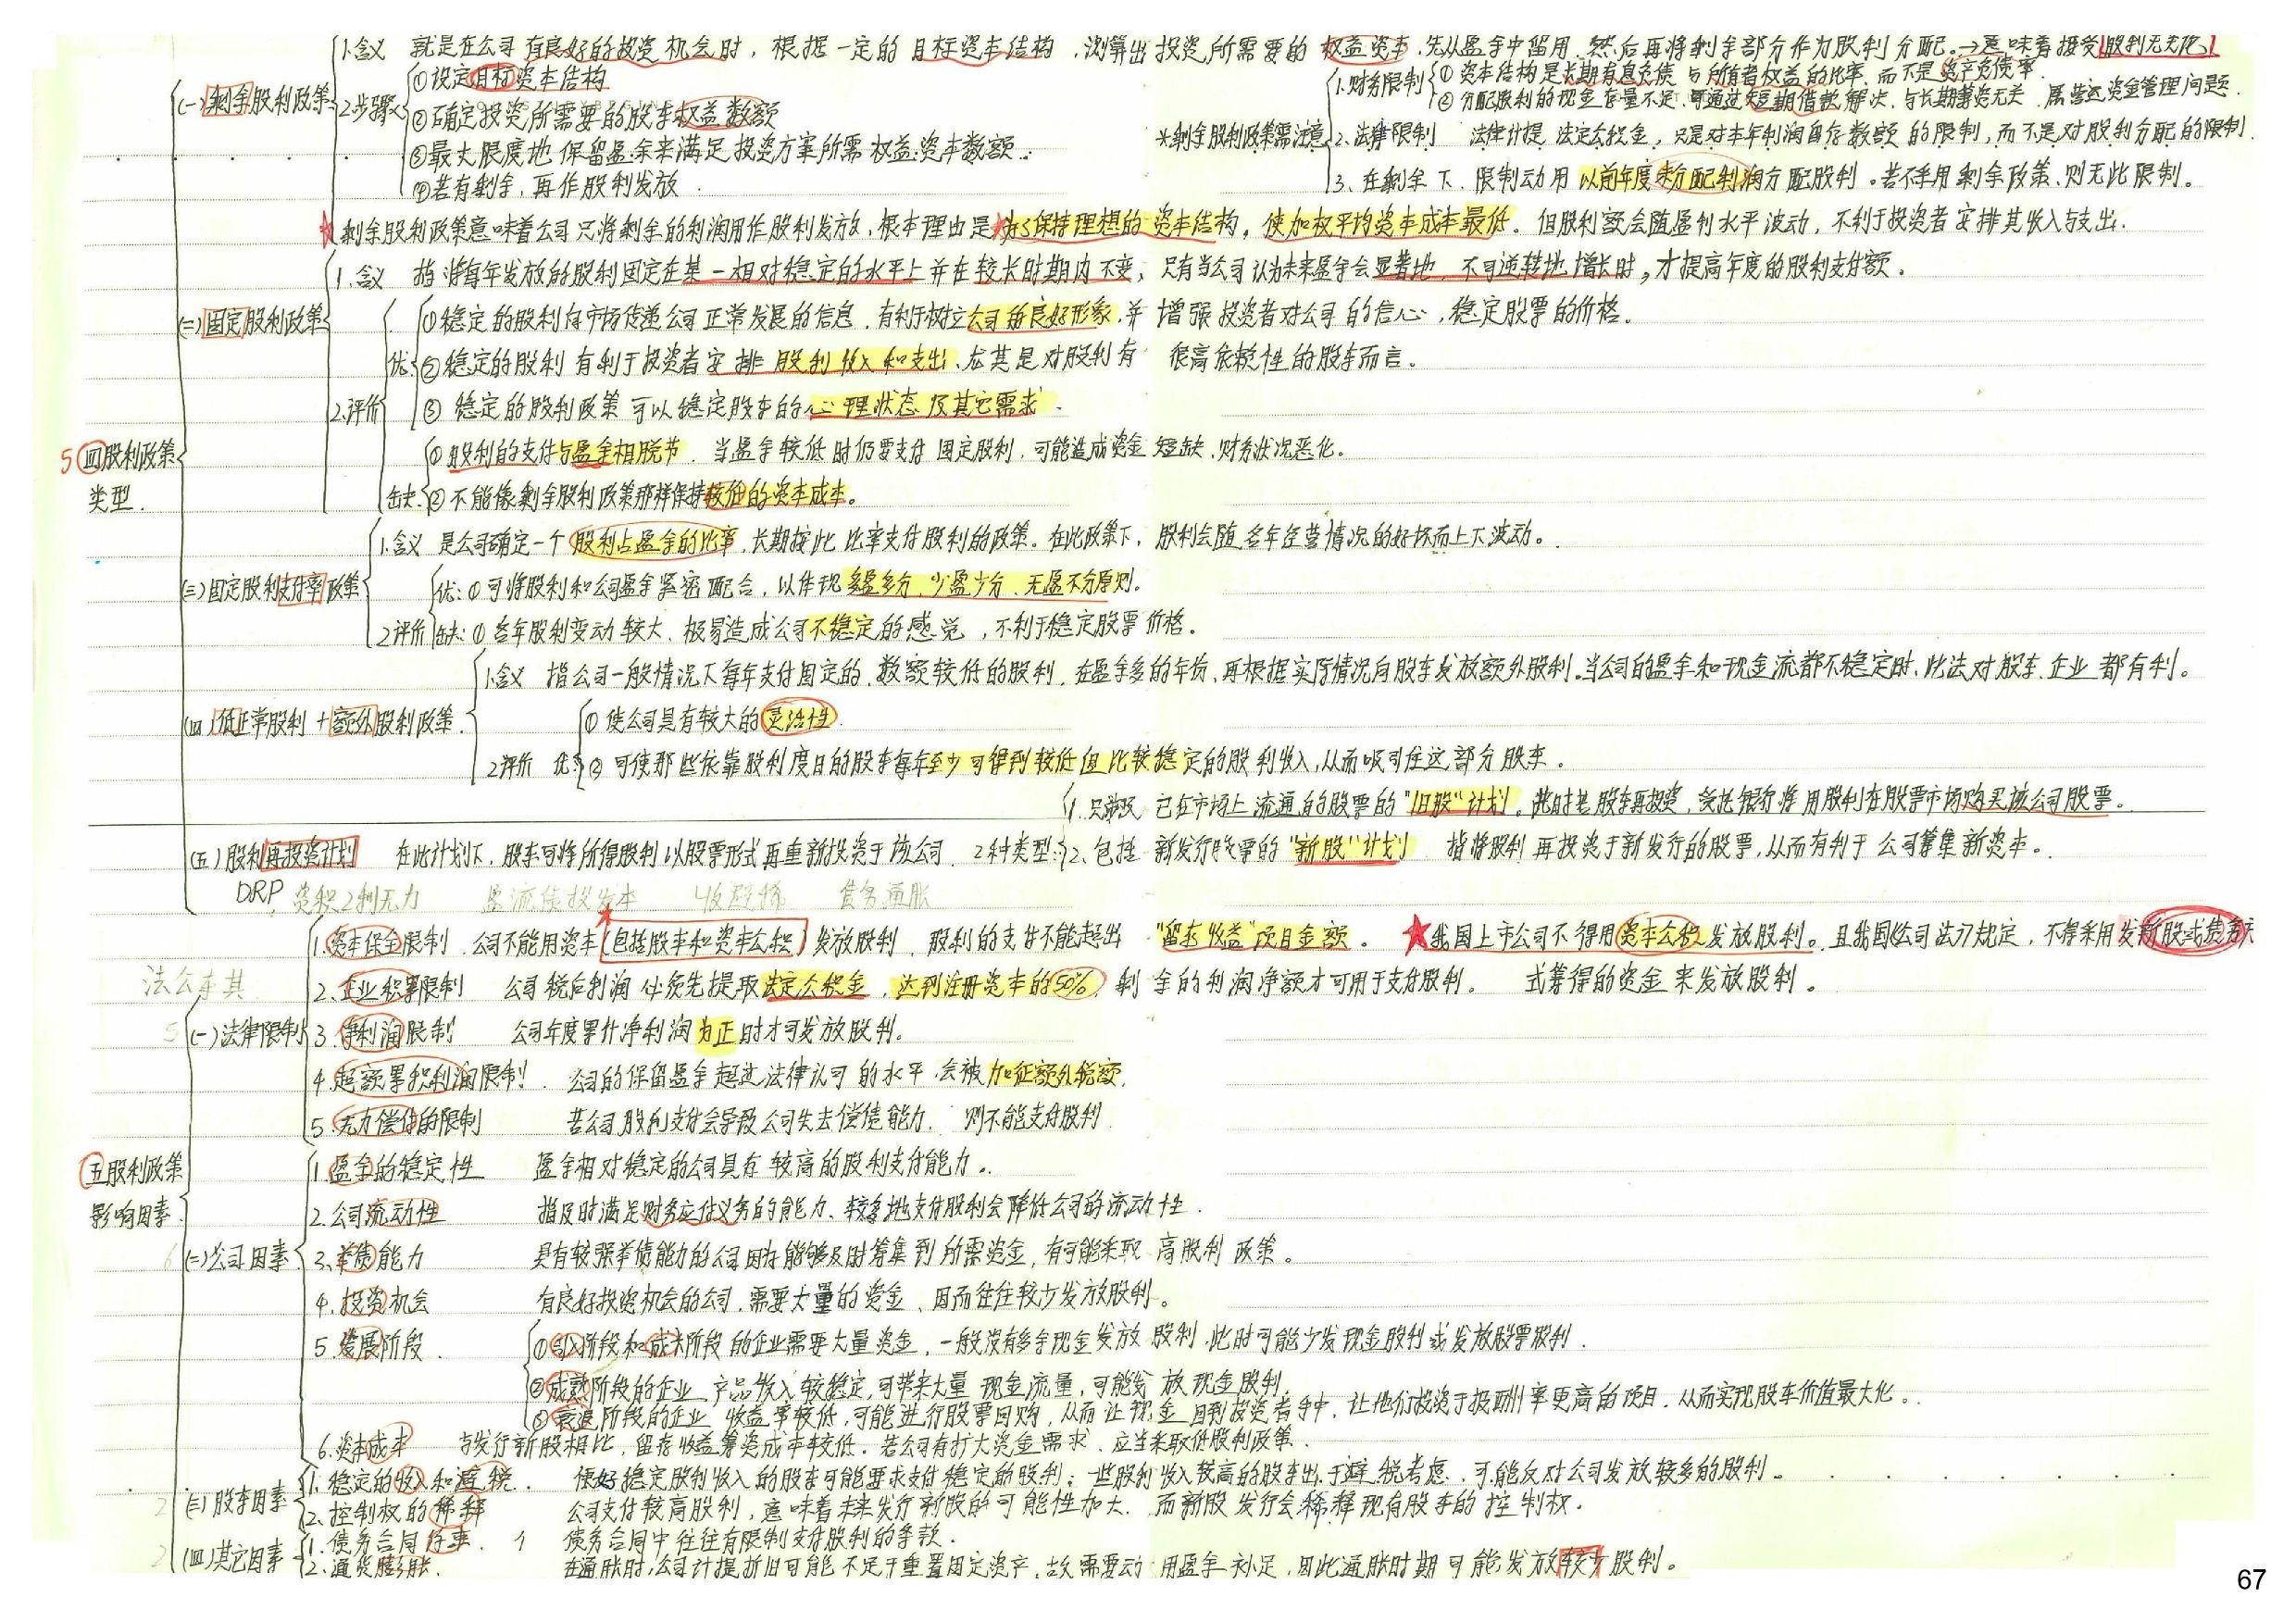 5 四股利政策
类型.
(一)剩余股利政策
1.含义 就是在公司有良好的投资机会时，根据一定的目标资本结构，测算出投资所需要的权益资本，先从盈余中留用，然后再将剩余部分作为股利分配。→意味着接受股利无关论
2.步骤
①设定目标资本结构
②确定投资所需要的股东权益数额
③最大限度地保留盈余来满足投资方案所需权益资本数额.
④若有剩余，再作股利发放.
*剩余股利政策需注意
1.财务限制 ①资本结构是长期有息负债与所有者权益的比率，而不是资产负债率.
②分配股利的现金存量不足，可通过短期借款解决，与长期筹资无关，属营运资金管理问题.
2.法律限制 法律计提法定公积金，只是对本年利润留存数额的限制，而不是对股利分配的限制.
3.在剩余下，限制动用以前年度未分配利润分配股利。若不采用剩余政策，则无此限制。
★剩余股利政策意味着公司只将剩余的利润用作股利发放，根本理由是为了保持理想的资本结构，使加权平均资本成本最低。但股利额会随盈利水平波动，不利于投资者安排其收入与支出.
(二)固定股利政策
1.含义 指将每年发放的股利固定在某一相对稳定的水平上并在较长时期内不变，只有当公司认为未来盈余会显著地、不可逆转地增长时，才提高年度的股利支付额。
2.评价
优:
①稳定的股利向市场传递公司正常发展的信息，有利于树立公司的良好形象，并增强投资者对公司的信心，稳定股票的价格。
②稳定的股利有利于投资者安排股利收入和支出，尤其是对股利有很高依赖性的股东而言。
③稳定的股利政策可以稳定股东的心理状态及其它需求.
缺:
①股利的支付与盈余相脱节，当盈余较低时仍要支付固定股利，可能造成资金短缺，财务状况恶化。
②不能像剩余股利政策那样保持较低的资本成本。
(三)固定股利支付率政策
1.含义 是公司确定一个股利占盈余的比率，长期按此比率支付股利的政策。在此政策下，股利会随各年经营情况的好坏而上下波动。
2.评价
优:①可将股利和公司盈余紧密配合，以体现多盈多分、少盈少分、无盈不分原则。
缺:①各年股利变动较大，极易造成公司不稳定的感觉，不利于稳定股票价格。
(四)低正常股利+额外股利政策.
1.含义 指公司一般情况下每年支付固定的、数额较低的股利，在盈余多的年份，再根据实际情况向股东发放额外股利。当公司的盈余和现金流都不稳定时，此法对股东、企业都有利。
2.评价 优:
①使公司具有较大的灵活性.
②可使那些依靠股利度日的股东每年至少可得到较低但比较稳定的股利收入，从而吸引住这部分股东.
(五)股利再投资计划 在此计划下，股东可将所得股利以股票形式再重新投资于该公司. 2种类型:
1.只涉及已在市场上流通的股票的"旧股"计划。此时若股东再投资，受托银行将用股利在股票市场购买该公司股票。
2.包括新发行股票的"新股"计划 指将股利再投资于新发行的股票，从而有利于公司筹集新资本。
DRP 资积2利无力 盈流债投发本 收控稀 债务通胀
五股利政策
影响因素.
法公东其
5 (一)法律限制
1.资本保全限制. 公司不能用资本(包括股本和资本公积)发放股利，股利的支付不能超出"留存收益"项目金额。 ★我国上市公司不得用资本公积发放股利。且我国公司法规定，不得采用发新股或债务方
式筹得的资金来发放股利。
2.企业积累限制 公司税后利润必须先提取法定公积金，达到注册资本的50%，剩余的利润净额才可用于支付股利。
3.净利润限制 公司年度累计净利润为正时才可发放股利。
4.超额累积利润限制. 公司的保留盈余超过法律认可的水平，会被加征额外税额.
5.无力偿付的限制 若公司股利支付会导致公司失去偿债能力，则不能支付股利
6 (二)公司因素
1.盈余的稳定性 盈余相对稳定的公司具有较高的股利支付能力.
2.公司流动性 指及时满足财务应付义务的能力、较多地支付股利会降低公司的流动性.
3.举债能力 具有较强举债能力的公司因为能够及时筹集到所需资金，有可能采取高股利政策。
4.投资机会 有良好投资机会的公司，需要大量的资金，因而往往较少发放股利。
5.发展阶段.
①引入阶段和成长阶段的企业需要大量资金，一般没有多余现金发放股利，此时可能少发现金股利或发放股票股利.
②成熟阶段的企业，产品收入较稳定，可带来大量现金流量，可能发放现金股利.
③衰退阶段的企业，收益率较低，可能进行股票回购，从而让现金回到投资者手中，让他们投资于报酬率更高的项目，从而实现股东价值最大化。
6.资本成本 与发行新股相比，留存收益筹资成本较低. 若公司有扩大资金需求，应当采取低股利政策.
2 (三)股东因素
1.稳定的收入和避税. 偏好稳定股利收入的股东可能要求支付稳定的股利；一些股利收入较高的股东出于避税考虑，可能反对公司发放较多的股利。
2.控制权的稀释 公司支付较高股利，意味着未来发行新股的可能性加大，而新股发行会稀释现有股东的控制权.
2 (四)其它因素
1.债务合同约束. 债务合同中往往有限制支付股利的条款.
2.通货膨胀. 在通胀时，公司计提折旧可能不足于重置固定资产，故需要动用盈余补足，因此通胀时期可能发放较少股利。
67